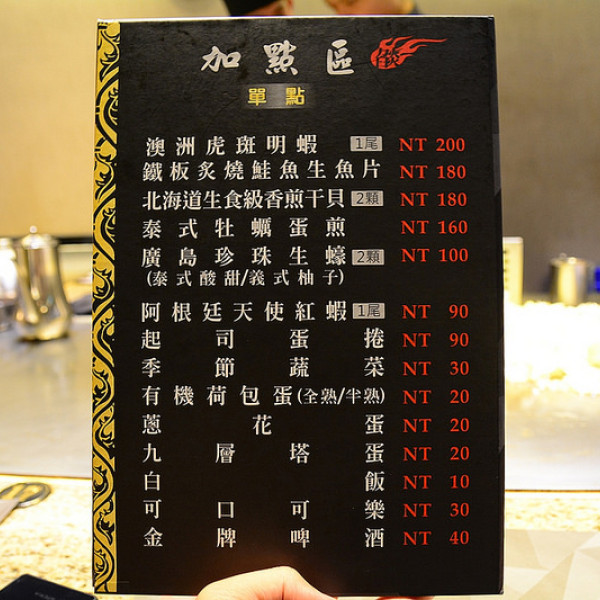 加點區
單點
澳洲虎斑明蝦 1尾 NT 200
鐵板炙燒鮭魚生魚片 NT 180
北海道生食級香煎干貝 2顆 NT 180
泰式牡蠣蛋煎 NT 160
廣島珍珠生蠔 2顆 NT 100
(泰式酸甜/義式柚子)
阿根廷天使紅蝦 1尾 NT 90
起司蛋捲 NT 90
季節蔬菜 NT 30
有機荷包蛋(全熟/半熟) NT 20
蔥花蛋 NT 20
九層塔蛋 NT 20
白飯 NT 10
可口可樂 NT 30
金牌啤酒 NT 40